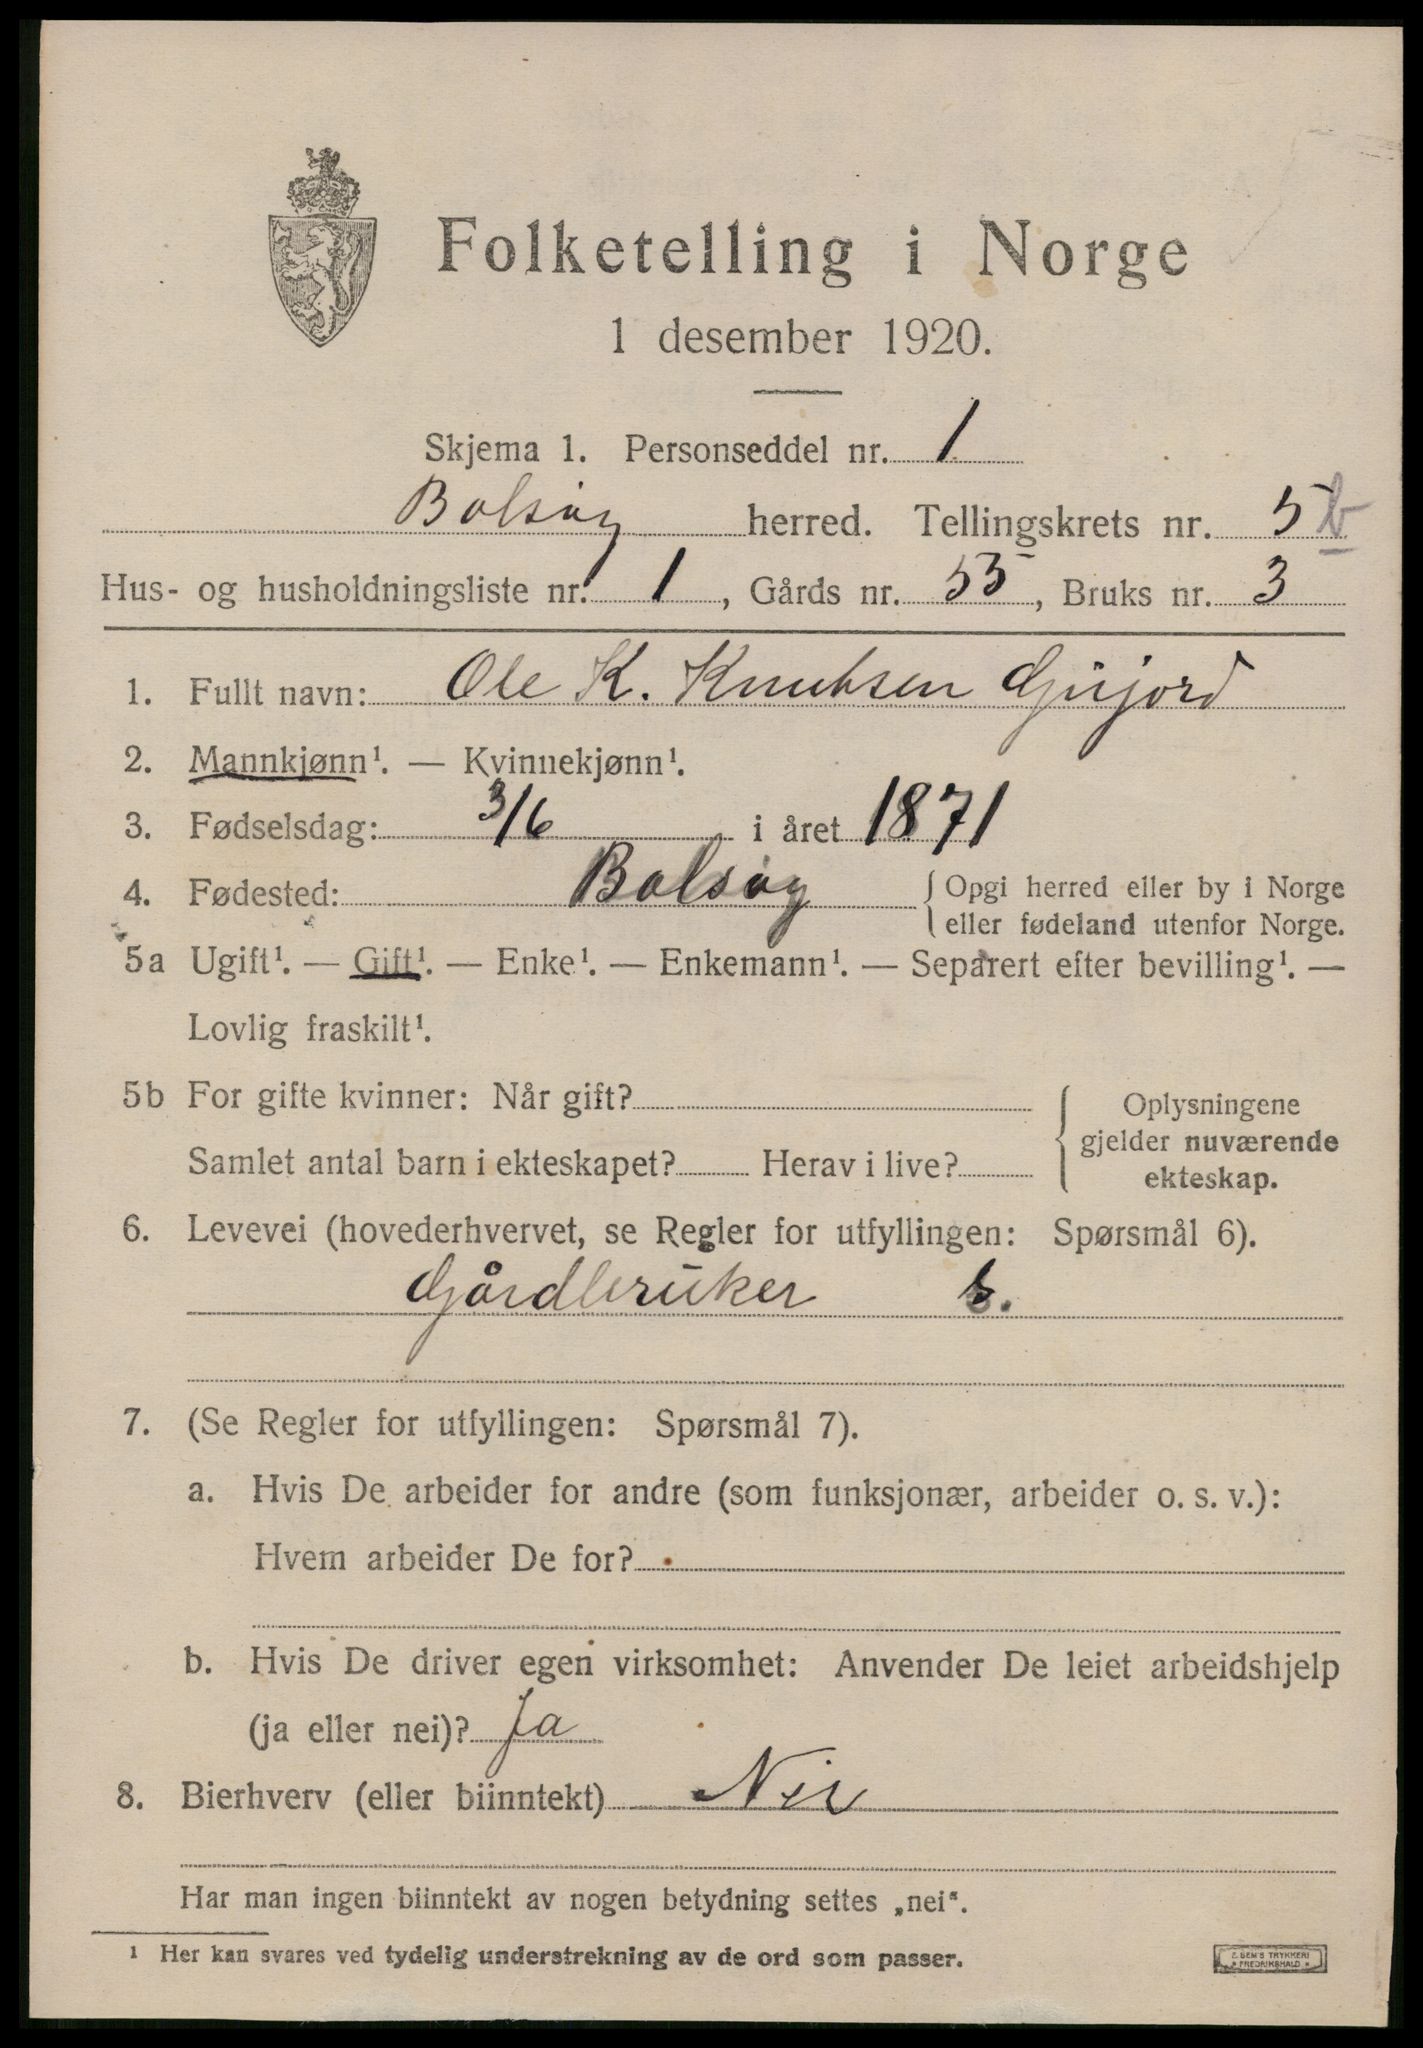 Folketelling i Norge
1 desember 1920.
Skjema 1. Personseddel nr. 1
Bolsøy herred. Tellingskrets nr. 5 b
Hus- og husholdningsliste nr. 1, Gårds nr. 55, Bruks nr. 3
1. Fullt navn: Ole K. Knutsen Gujord
2. Mannkjønn¹. — Kvinnekjønn¹.
3. Fødselsdag: 3/6 i året 1871
4. Fødested: Bolsøy { Opgi herred eller by i Norge
eller fødeland utenfor Norge.
5a Ugift¹. — Gift¹. — Enke¹. — Enkemann¹. — Separert efter bevilling¹. —
Lovlig fraskilt¹.
5b For gifte kvinner: Når gift?
Samlet antal barn i ekteskapet? Herav i live?
Oplysningene
gjelder nuværende
ekteskap.
6. Levevei (hovederhvervet, se Regler for utfyllingen: Spørsmål 6).
Gårdbruker s.
7. (Se Regler for utfyllingen: Spørsmål 7).
a. Hvis De arbeider for andre (som funksjonær, arbeider o. s. v.):
Hvem arbeider De for?
b. Hvis De driver egen virksomhet: Anvender De leiet arbeidshjelp
(ja eller nei)? Ja
8. Bierhverv (eller biinntekt) Nei
Har man ingen biinntekt av nogen betydning settes „nei“.
¹ Her kan svares ved tydelig understrekning av de ord som passer.
E. SEM'S TRYKKERI
FREDRIKSHALD